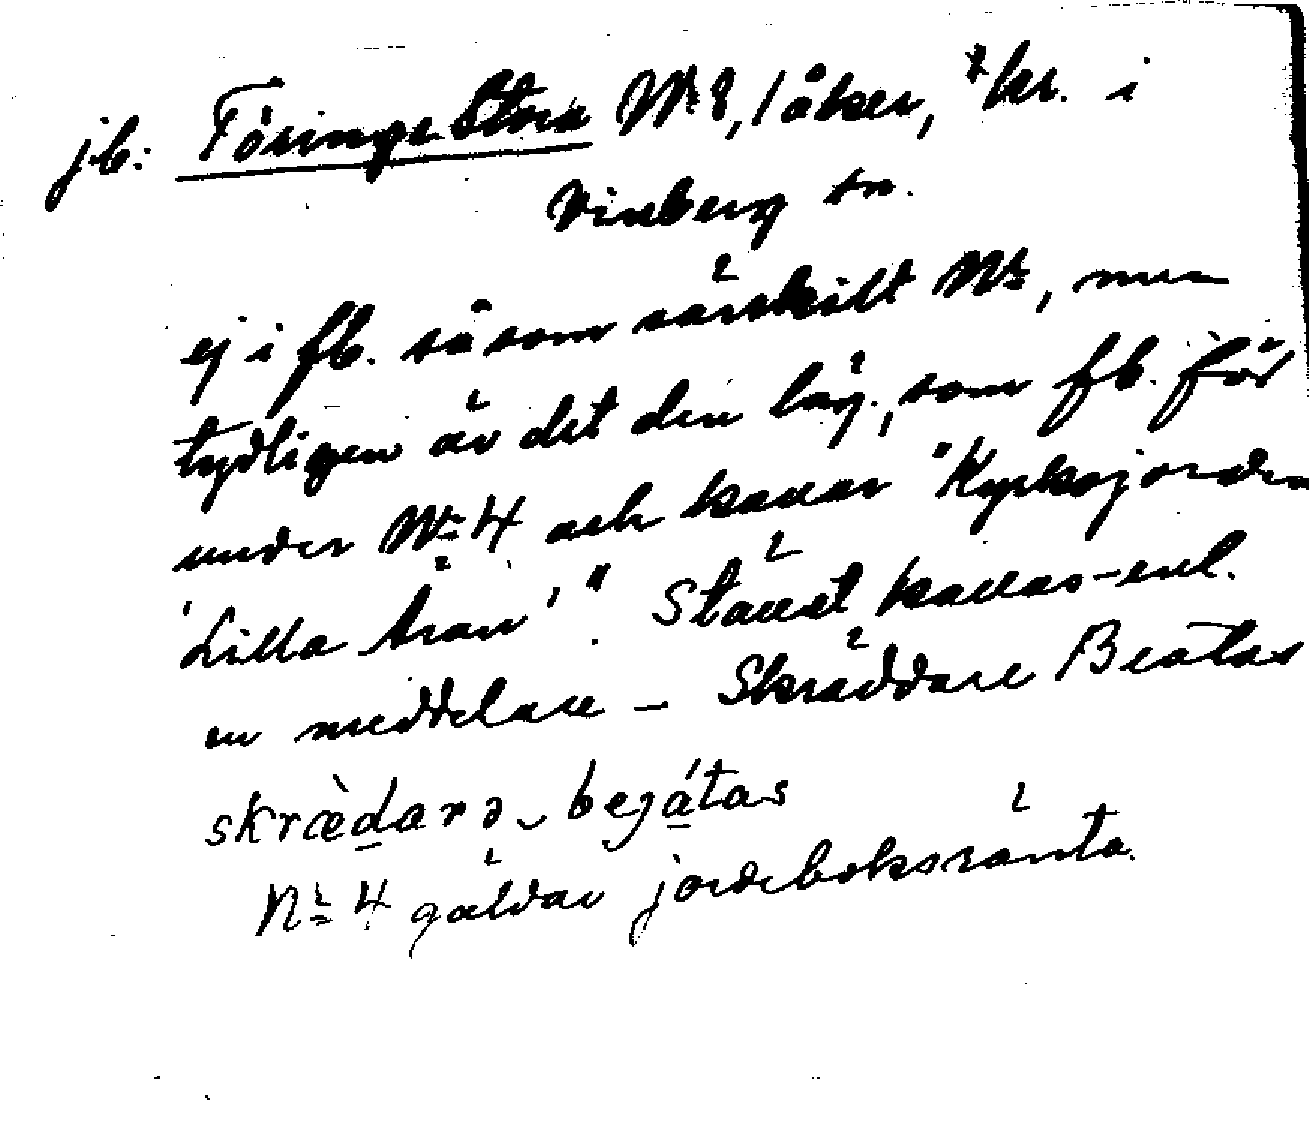 jb: Töringe Stora Nr 8, 1 åker, *kr. i
Vinberg sn.
ej i fb. såsom särskilt Nr, men
tydligen är det den läg., som fb. för
under Nr 4 och kallar "Kyrkojorden
'Lilla Aran'". Stället kallas - enl.
en meddelare - Skräddare Beatas
skrædarə begátas
Nr 4 gäldar jordeboksränta.